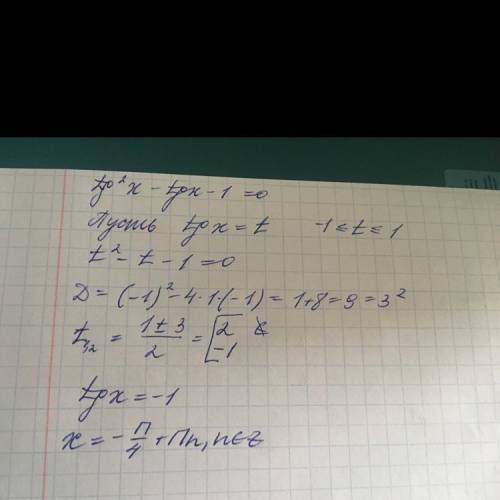 tg²x - tgx - 1 = 0
Пусть tgx = t -1 ≤ t ≤ 1
t² - t - 1 = 0
D = (-1)² - 4·1·(-1) = 1+8 = 9 = 3²
t₁,₂ = (1 ± 3)/2 = [2 [-1
tgx = -1
x = -π/4 + πn, n∈Z